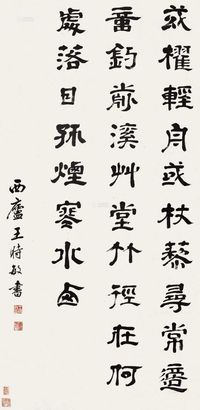 或櫂輕舟或杖藜尋常適
意釣前溪艸堂竹徑在何
處落日孤煙寒水西
西廬王時敏書